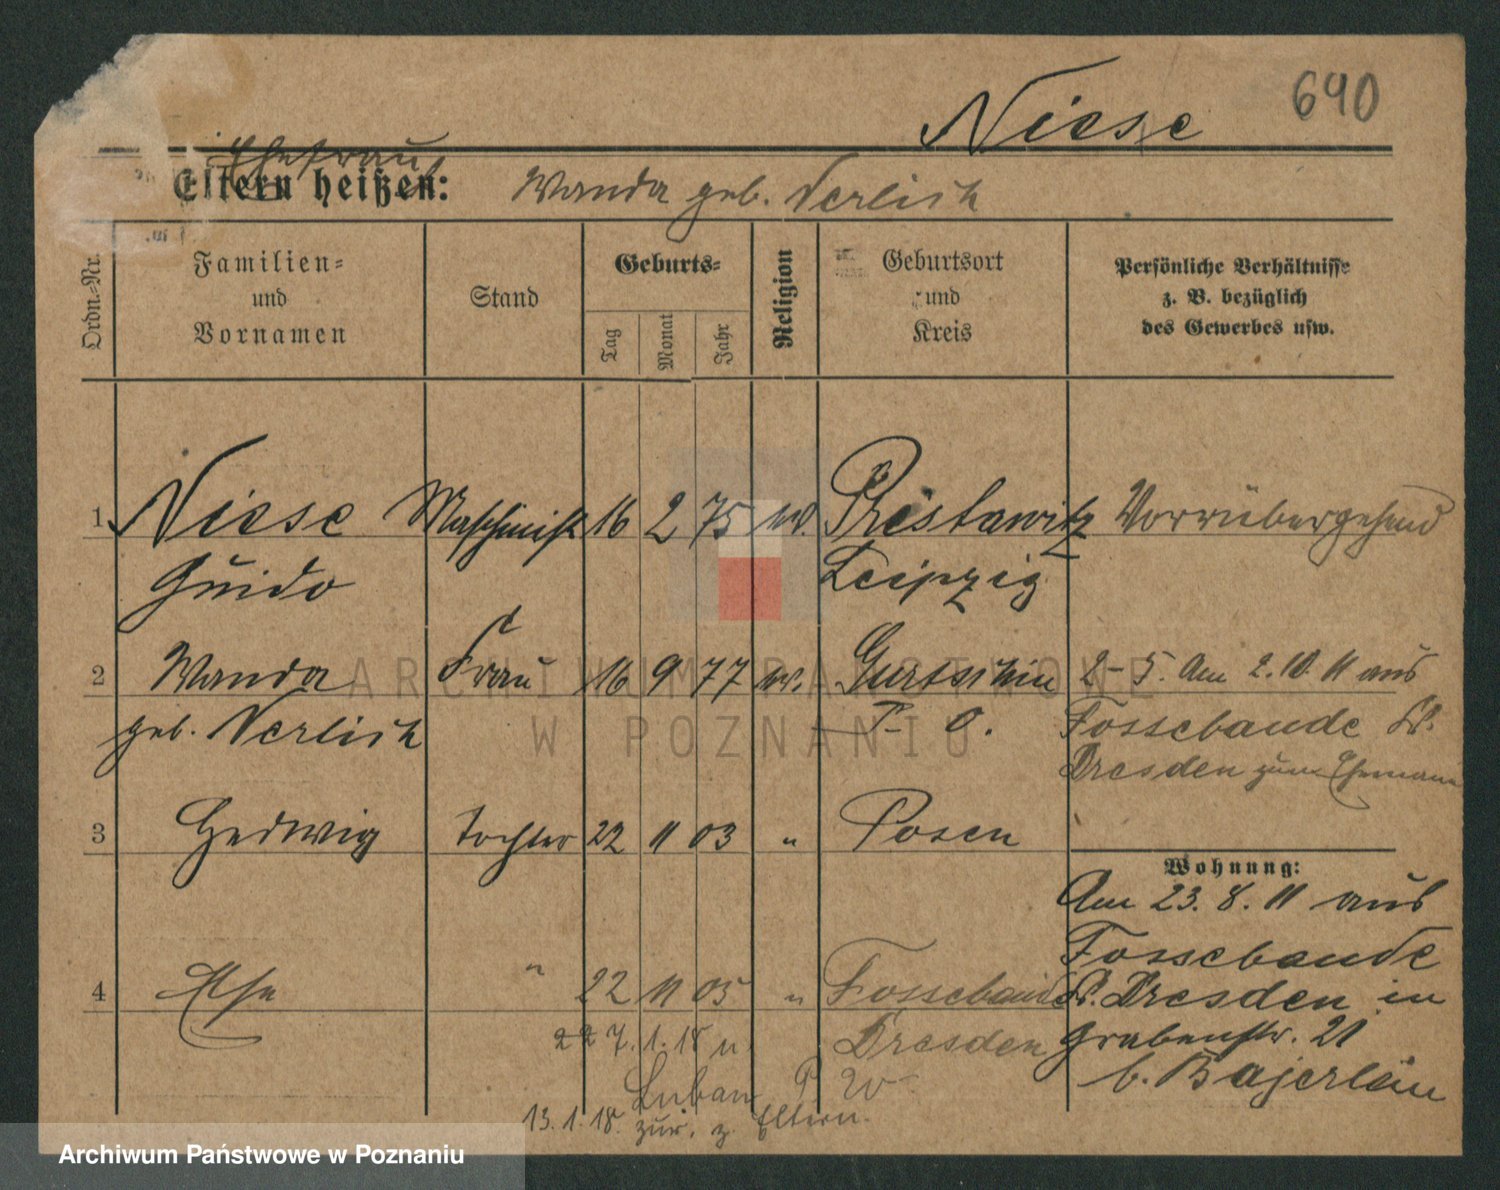 690
Niese
Ehefrau
Eltern heißen: Wanda geb. Nerlich
Ordn.-Nr.
Familien-
und
Vornamen
Stand
Geburts-
Tag
Monat
Jahr
Religion
Geburtsort
und
Kreis
Persönliche Verhältnisse
z. B. bezüglich
des Gewerbes usw.
1 Niese Maschinist 16 2 75 Prëstawitz Vorrübergehend
Guido Leipzig
2 Wanda Frau 16 9 77 Gurtschin 2-5. Am 2.10.11 aus
geb. Nerlich P. O. Fossebaude Kr.
Dresden zum Ehemann
3 Hedwig Tochter 22 11 03 " Posen
Wohnung:
Am 23.8.11 aus
Fossebaude
4 Else " 22 11 05 " Fossebaude Kr. Dresden in
22 7.1.18 n. Dresden Grabenstr. 21
Luban P. W b. Bajerlein
13.1.18. zur. z. Eltern.
ARCHIWUM PAŃSTWOWE
W POZNANIU
Archiwum Państwowe w Poznaniu